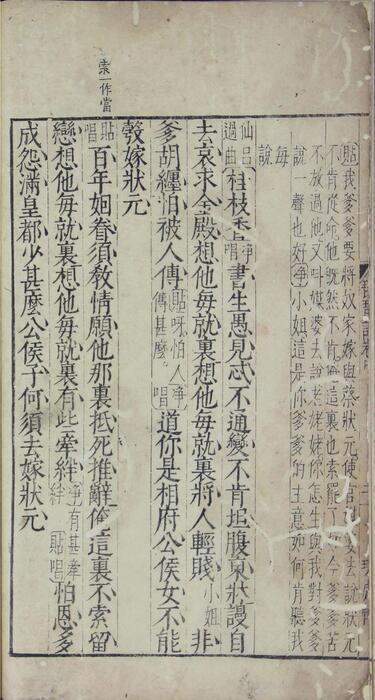 貼我爹爹要將奴家嫁與蔡狀元使官媒婆去說狀元
不肯從命他既然不肯這裏也索罷了如今爹爹苦
不放過他又叫媒婆去說老姥姥你怎生與我對爹爹
說一聲也好淨小姐這是你爹爹的主意如何肯聽我
每說
仙呂過曲桂枝香淨唱書生愚見忒不通變不肯坦腹東牀謾自
去哀求金殿想他每就裏想他每就裏將人輕賤小姐非
爹胡纏怕被人傳貼呀怕人傳甚麼淨唱道你是相府公侯女不能
彀嫁狀元
貼唱百年姻眷須敎情願他那裏抵死推辭俺這裏不索留
索一作當
戀想他每就裏想他每就裏有些牽絆淨有甚牽絆貼唱怕恩多
成怨滿皇都少甚麼公侯子何須去嫁狀元